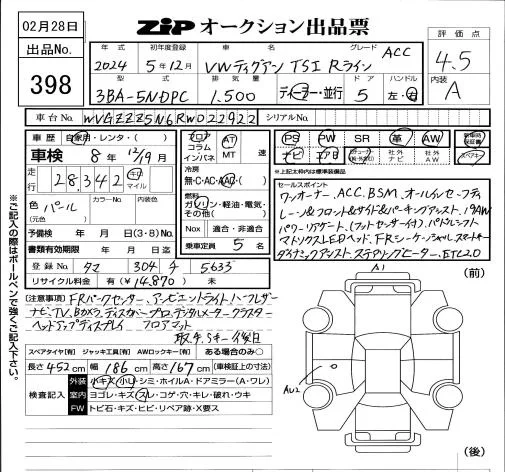 02月28日
ZIP オークション出品票
出品No.
398
年式 初年度登録 車名 グレード
2024 5年12月 VWティグアン TSI Rライン ACC
型式 排気量 ドア ハンドル
3BA-5NDPC 1.500 ディーラー・並行 5 左・右
評価点
4.5
内装
A
車台No. WVGZZZ5N6RW022922 シリアルNo.
車歴 自家用・レンタ・( )
車検 8年12/19月
走行 28,342 キロ マイル
色 パール カラーNo. 内装色
(元色)
予備検 年 月 日(3・8)No.
書類有効期限 年 月 日迄
登録No. タマ 304 チ 5633
リサイクル料金 有(¥14,870) 未
フロア コラム インパネ
AT
MT 速
冷房
無・C・AC・AAC・( )
燃料
ガソリン・軽油・電気・その他( )
Nox 適合・非適合
乗車定員 5 名
PS PW SR 革 AW
ナビ エアB 社外ナビ 社外AW
新車時保証書
スペアキー
※上記太枠内は標準装備品
セールスポイント
ワンオーナー、ACC、BSM、オールインセーフティ
レーン&フロント&サイド&パーキングアシスト、19AW
パワーリアゲート(フットセンサー付)、パドルシフト
マトリックスLEDヘッド、FRシーケンシャル、スマートキー
ダイナミックアシスト、ステアリングヒーター、ETC2.0
(注意事項) FRパークセンサー、アンビエントライト、ハーフレザー
ナビ、TV、Bカメラ、ディスカバープロ、デジタルメータークラスター
ヘッドアップディスプレイ フロアマット
取・キ・Sキー後日
スペアタイヤ[有] ジャッキ工具[有] AWロックキー[有] ある場合のみ○
長さ452cm 幅186cm 高さ167cm (車検証上の寸法)
検査記入
外装 小キズ・小凹・シミ・ホイルA・ドアミラー(A・ワレ)
室内 ヨゴレ・キズ・スレ・コゲ・穴・キレ・破れ・ウキ
FW トビ石・キズ・ヒビ・リペア跡・X要ス
A1
(前)
AU2
(後)
※ご記入の際はボールペンで強くご記入下さい。